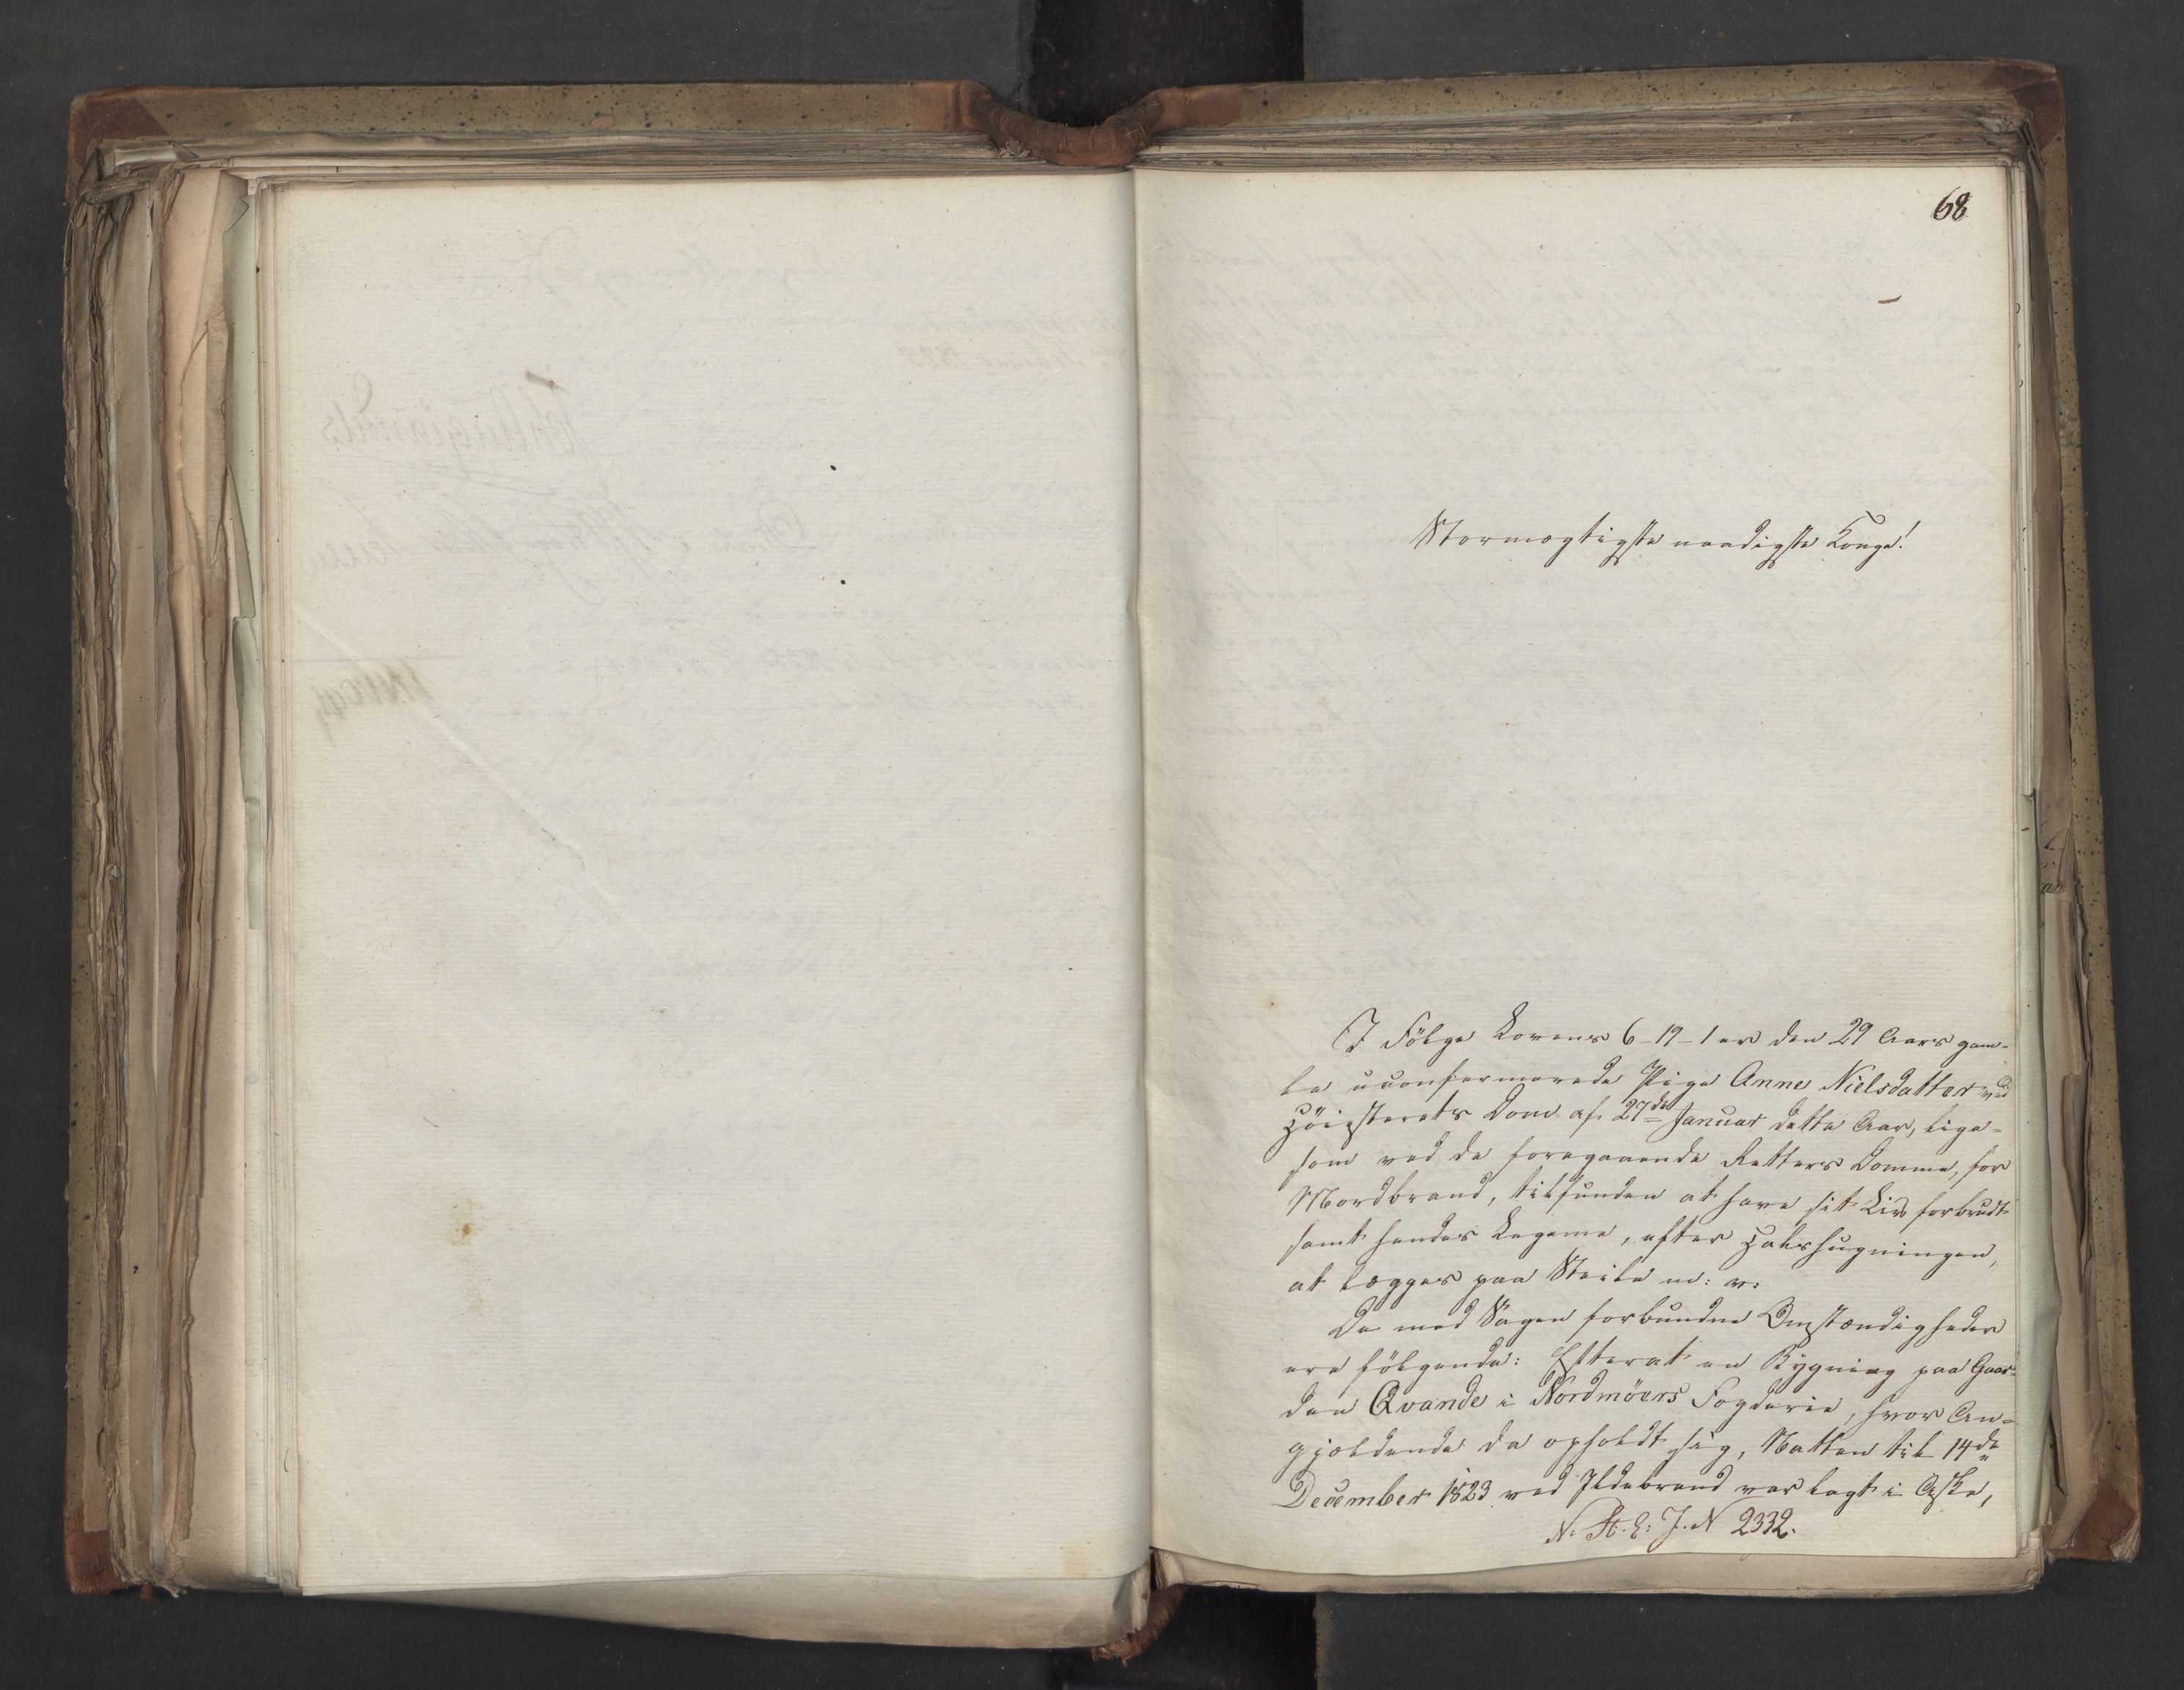 68
Stormægtigste naadigste Konge!
I Følge Lovens 6-19-1 er den 29 Aars gam-
le uconfirmerede Pige Anne Nielsdatter ved
Høiesterets Dom af 27de Januar dette Aar, lige-
som ved de foregaaende Retters Domme, for
Mordbrand, tilfunden at have sit Liv forbrudt
samt hendes Legeme, efter Halshugningen,
at lægges paa Steile m: v:
De med Sagen forbundne Omstændigheder
ere følgende: Efterat en Bygning paa Gaar-
den Qvande i Nordmöers Fogderie, hvor An-
gjældende da opholdt sig, Natten til 14de
December 1823 ved Ildebrand var lagt i Aske,
N. St. E: J. N 2332.